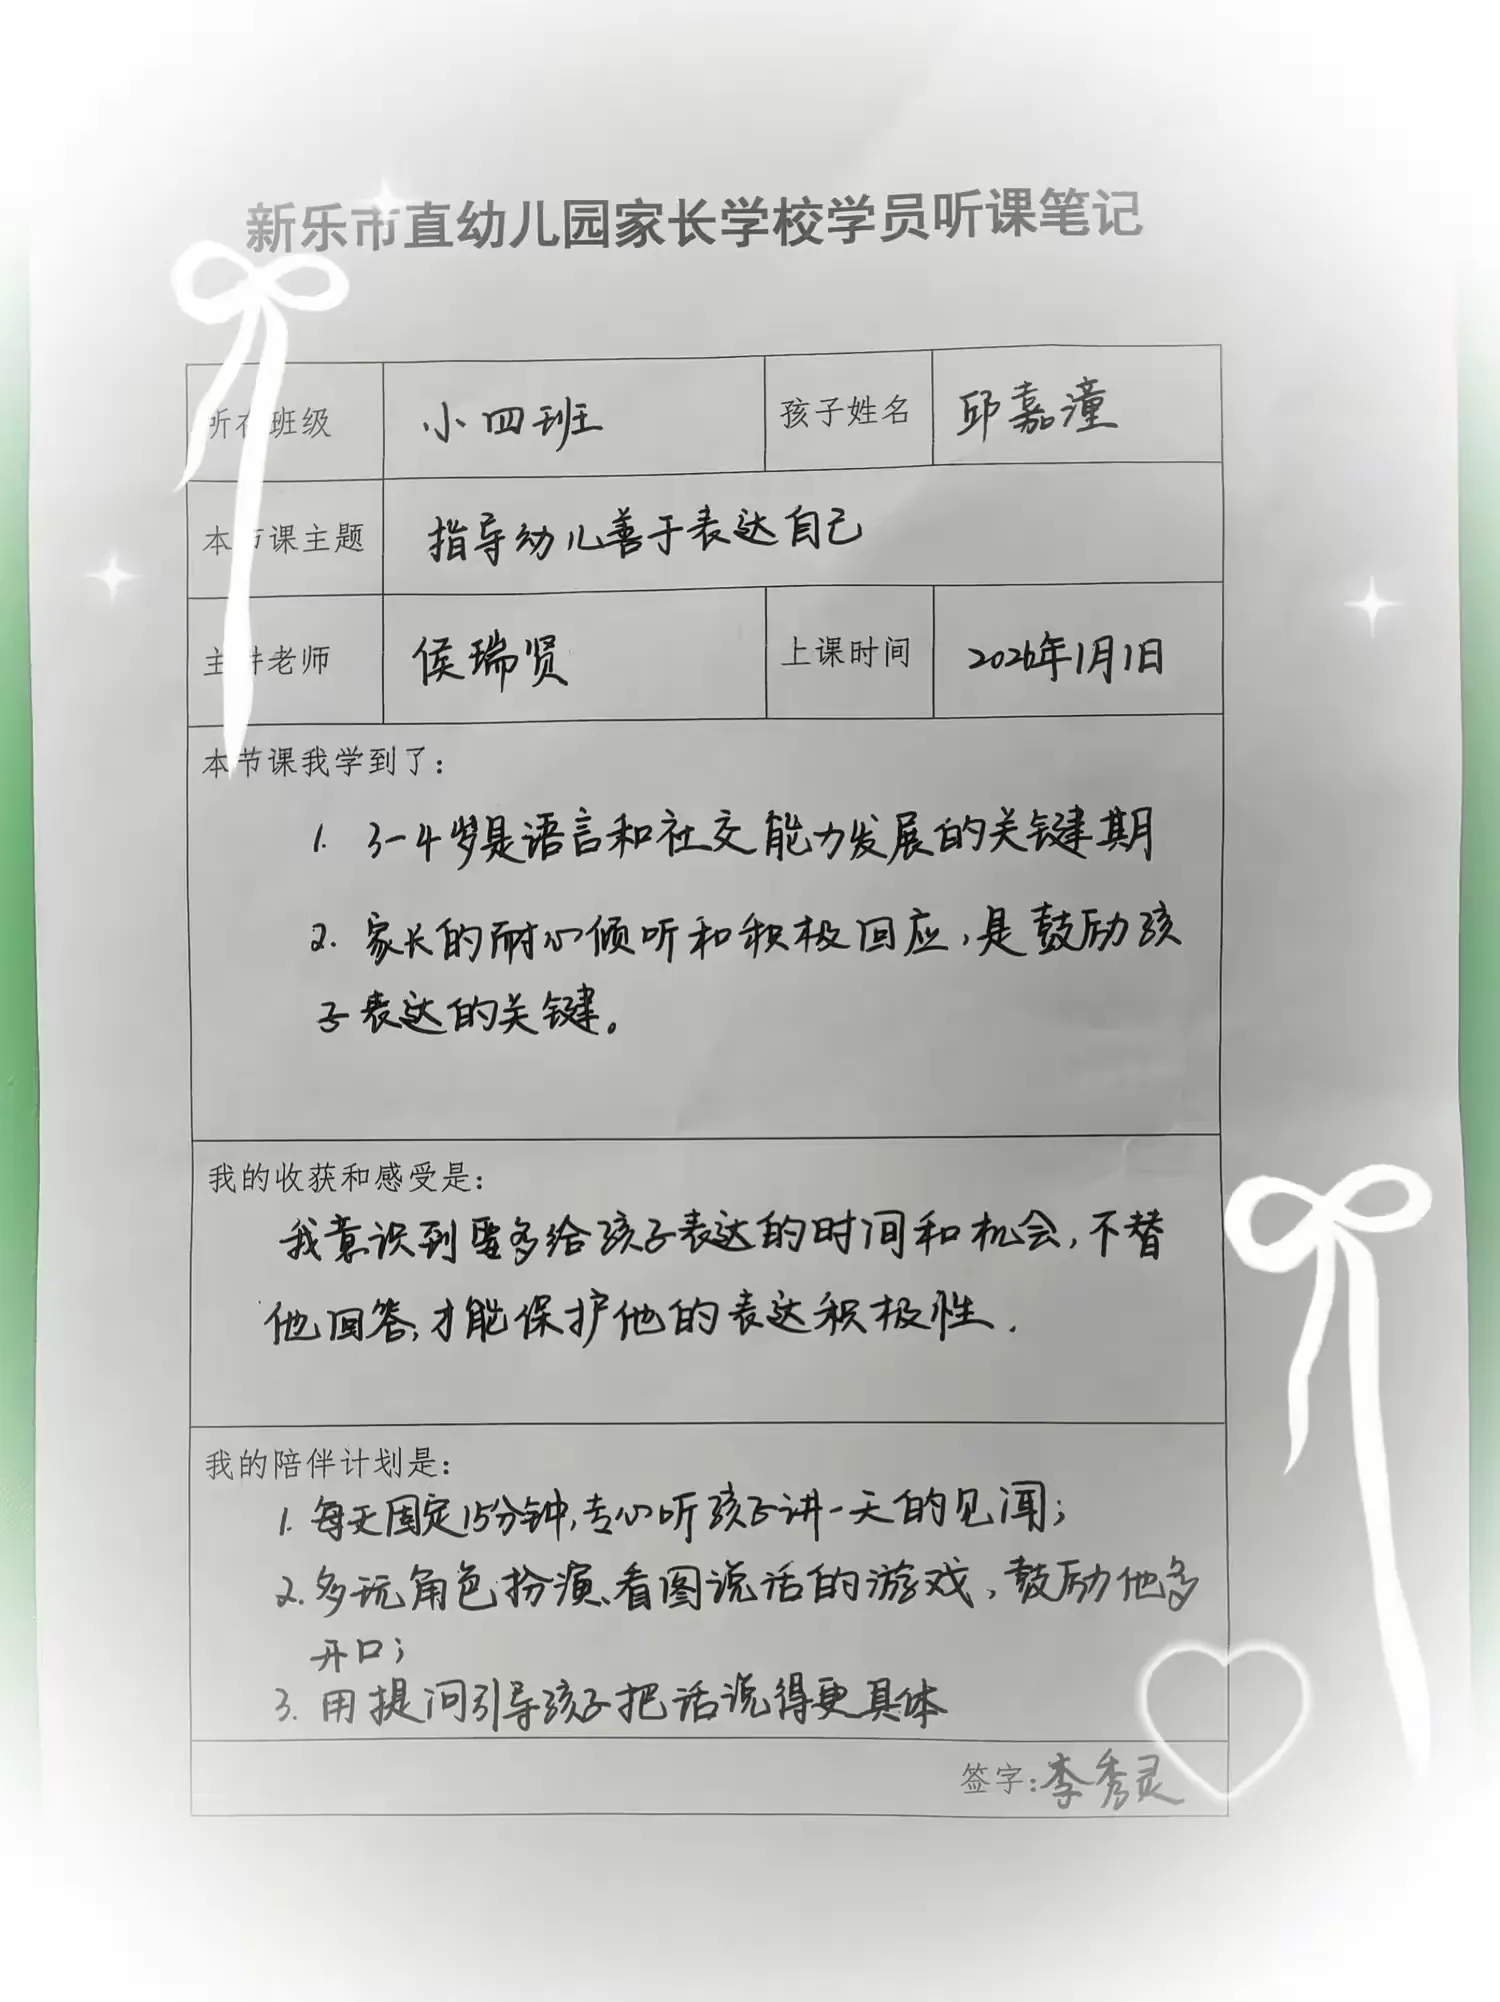 新乐市直幼儿园家长学校学员听课笔记
所在班级 小四班 孩子姓名 邱嘉潼
本节课主题 指导幼儿善于表达自己
主讲老师 侯瑞贤 上课时间 2026年1月1日
本节课我学到了:
1. 3-4岁是语言和社交能力发展的关键期
2. 家长的耐心倾听和积极回应,是鼓励孩
子表达的关键。
我的收获和感受是:
我意识到要多给孩子表达的时间和机会,不替
他回答,才能保护他的表达积极性.
我的陪伴计划是:
1. 每天固定15分钟,专心听孩子讲一天的见闻;
2. 多玩角色扮演、看图说话的游戏,鼓励他多
开口;
3. 用提问引导孩子把话说得更具体
签字:李秀灵